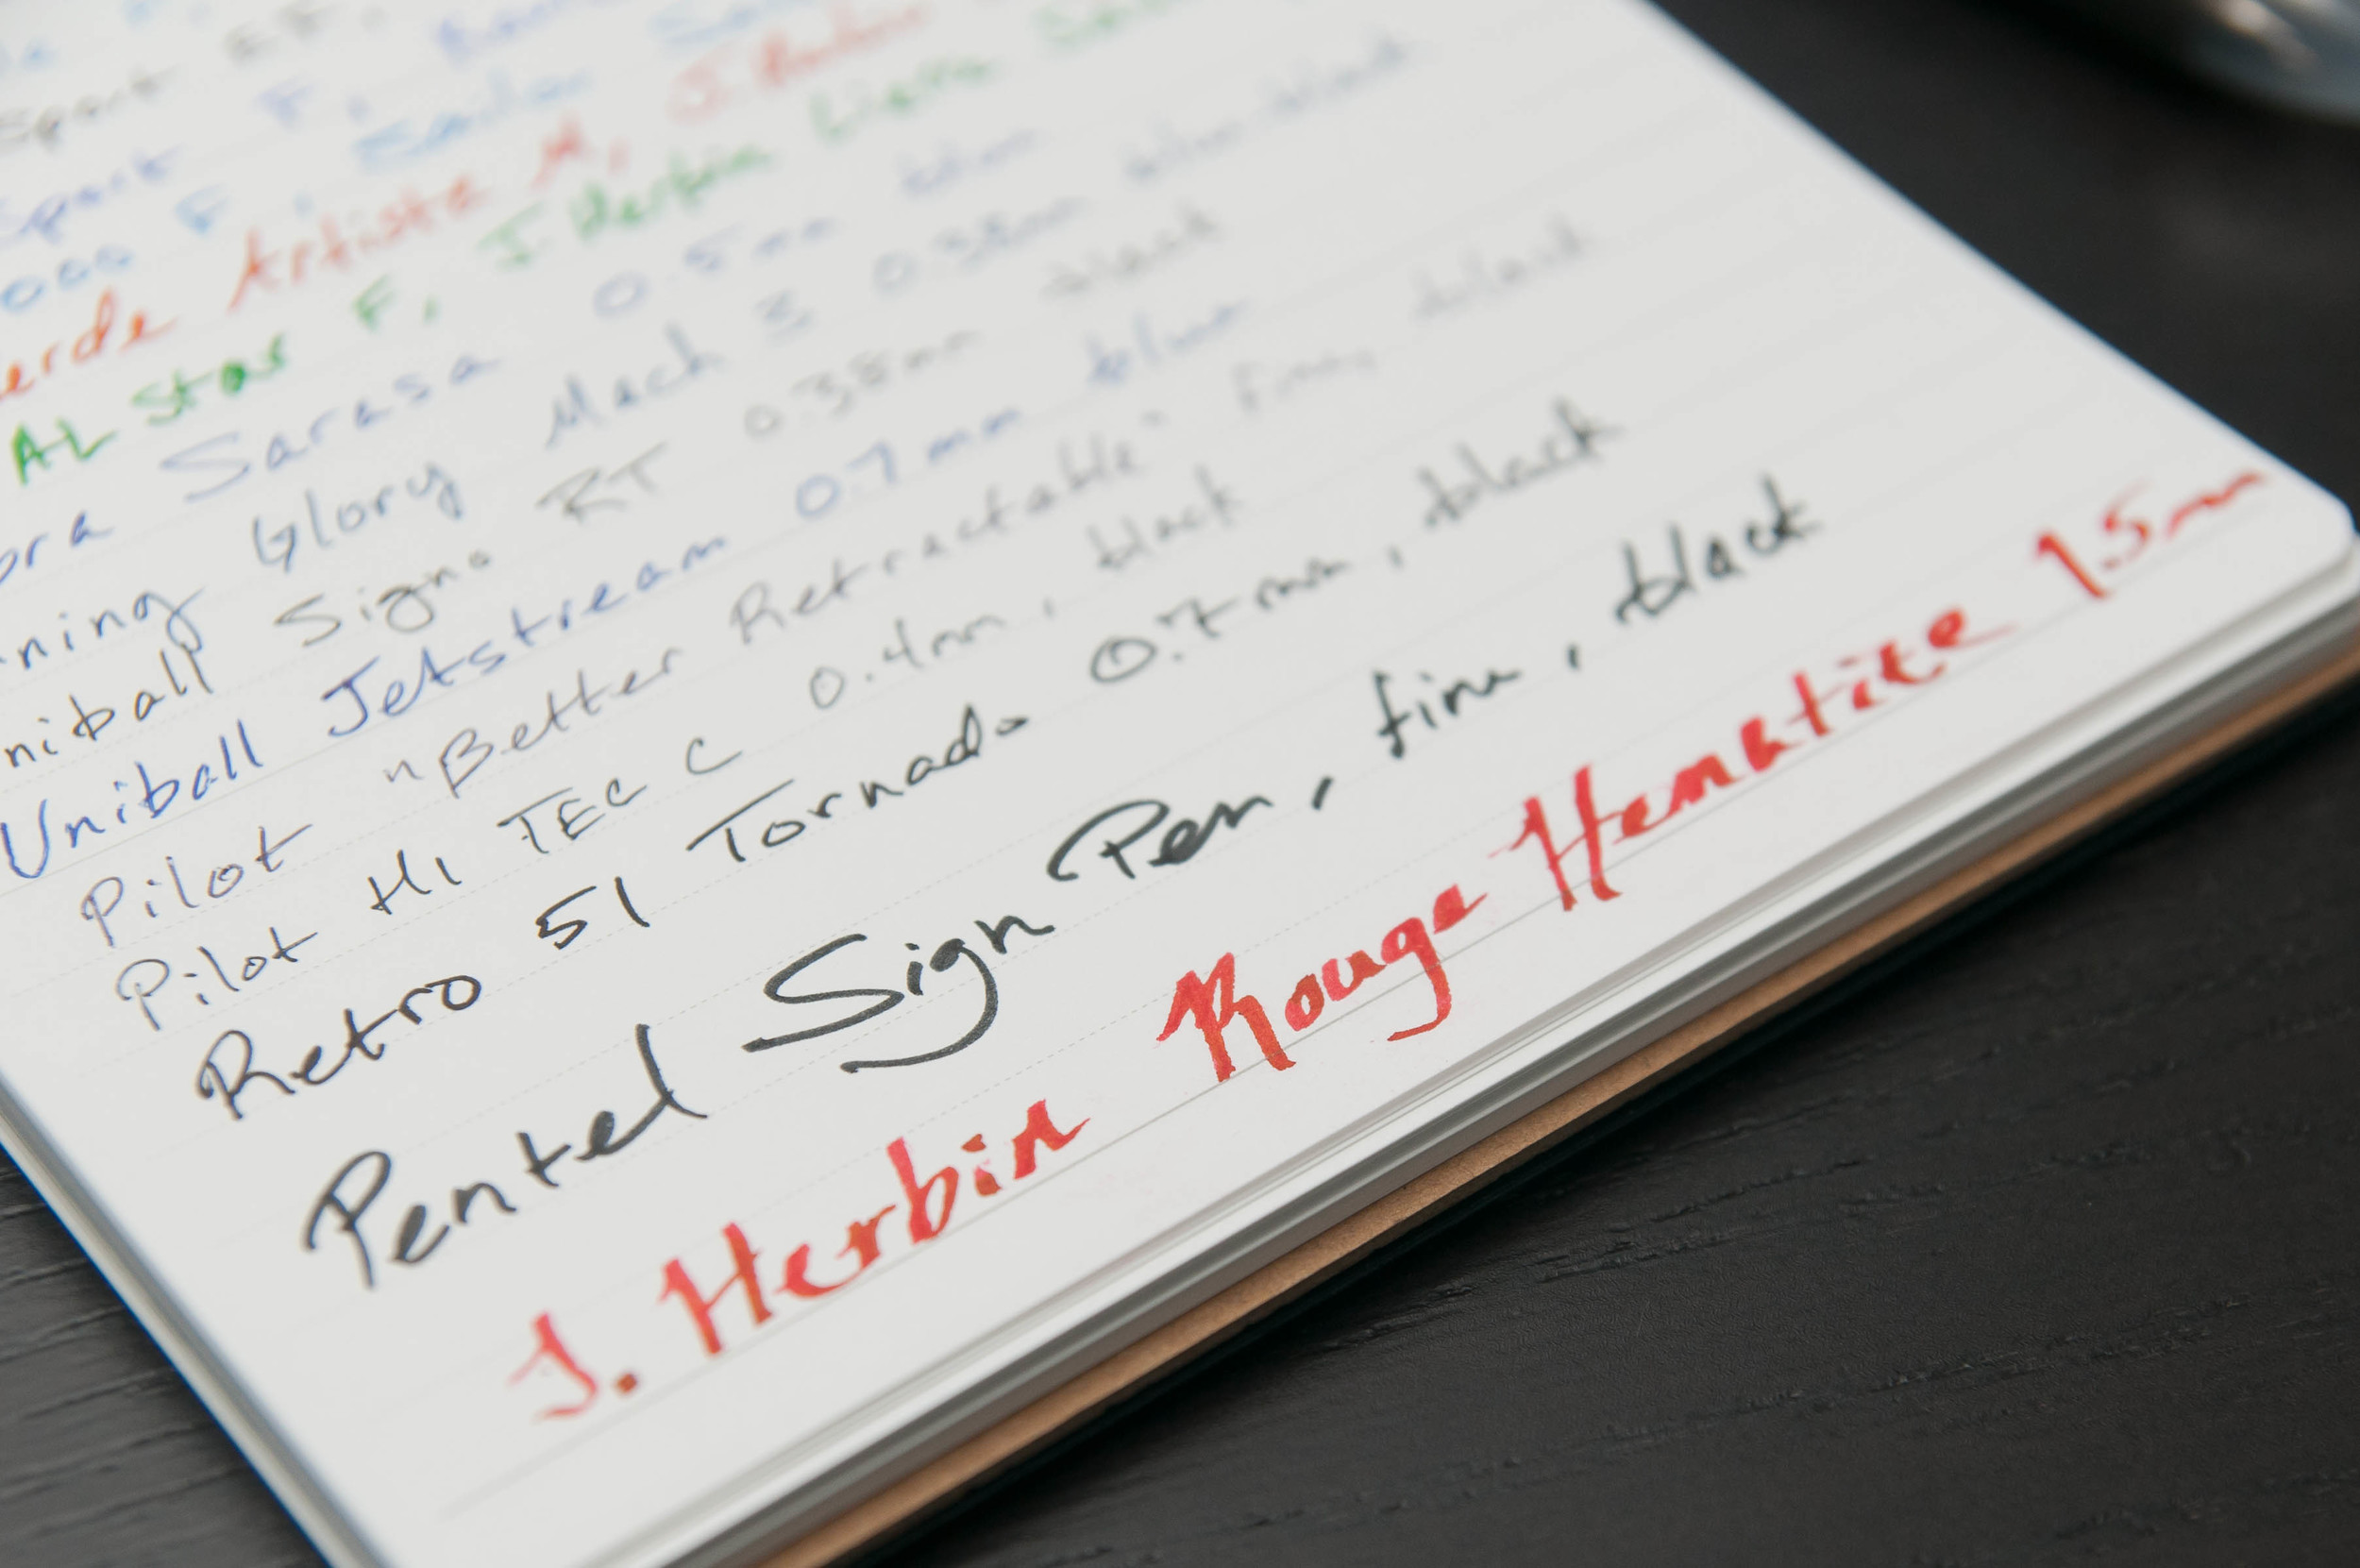 Sport EF,
Sport F,
000 F, Sailor
erde Artista M, J. Herbin
AL Star F, J. Herbin Lierre
bra Sarasa 0.5mm blue
ning Glory Mach 3 0.38mm blue-black
niball Signo RT 0.38mm black
Uniball Jetstream 0.7mm blue
Pilot "Better Retractable" fine, black
Pilot HI TEC C 0.4mm, black
Retro 51 Tornado 0.7mm, black
Pentel Sign Pen, fine, black
J. Herbin Rouge Hematite 1.5mm